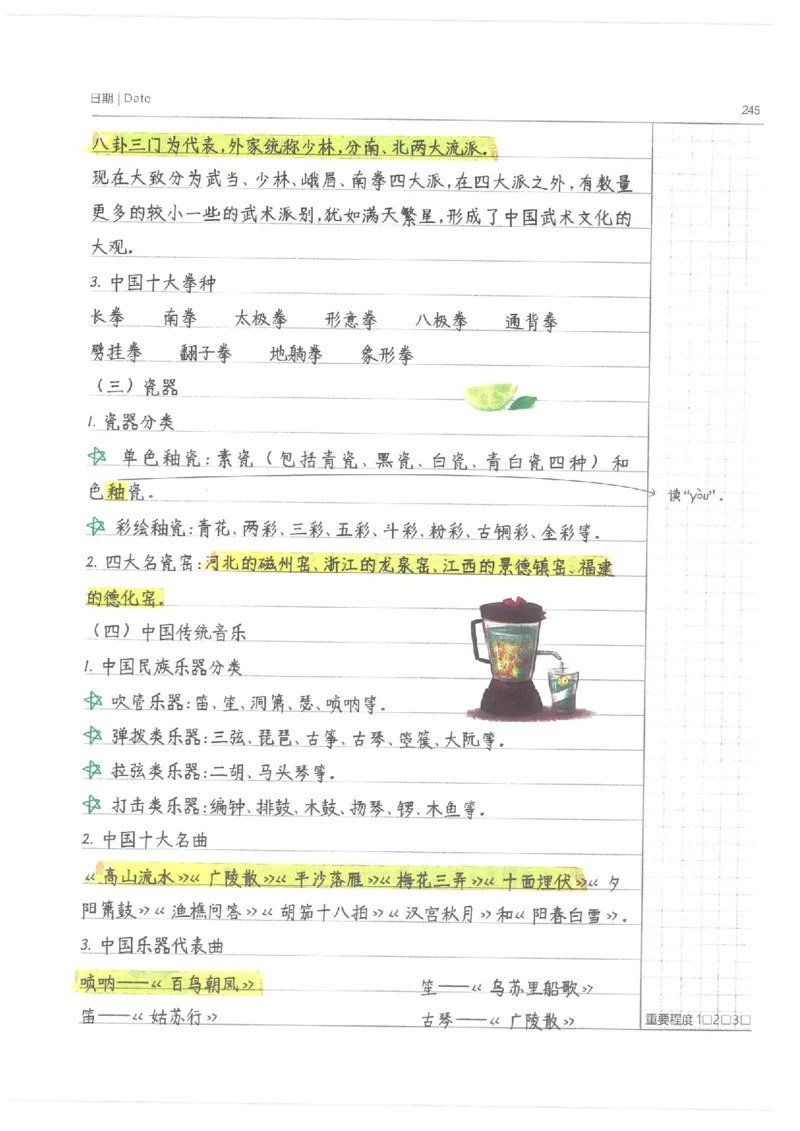 日期 | Date
245
八卦三门为代表,外家统称少林,分南、北两大流派。
现在大致分为武当、少林、峨眉、南拳四大派,在四大派之外,有数量
更多的较小一些的武术派别,犹如满天繁星,形成了中国武术文化的
大观。
3. 中国十大拳种
长拳 南拳 太极拳 形意拳 八极拳 通背拳
劈挂拳 翻子拳 地躺拳 象形拳
(三)瓷器
1. 瓷器分类
☆ 单色釉瓷:素瓷(包括青瓷、黑瓷、白瓷、青白瓷四种)和
色釉瓷。
读“yòu”.
☆ 彩绘釉瓷:青花、两彩、三彩、五彩、斗彩、粉彩、古铜彩、金彩等。
2. 四大名瓷窑:河北的磁州窑、浙江的龙泉窑、江西的景德镇窑、福建
的德化窑。
(四)中国传统音乐
1. 中国民族乐器分类
☆ 吹管乐器:笛、笙、洞箫、瑟、唢呐等。
☆ 弹拨类乐器:三弦、琵琶、古筝、古琴、箜篌、大阮等。
☆ 拉弦类乐器:二胡、马头琴等。
☆ 打击类乐器:编钟、排鼓、木鼓、扬琴、锣、木鱼等。
2. 中国十大名曲
《高山流水》《广陵散》《平沙落雁》《梅花三弄》《十面埋伏》《夕
阳箫鼓》《渔樵问答》《胡笳十八拍》《汉宫秋月》和《阳春白雪》。
3. 中国乐器代表曲
唢呐——《百鸟朝凤》 笙——《乌苏里船歌》
笛——《姑苏行》 古琴——《广陵散》
重要程度 1□2□3□